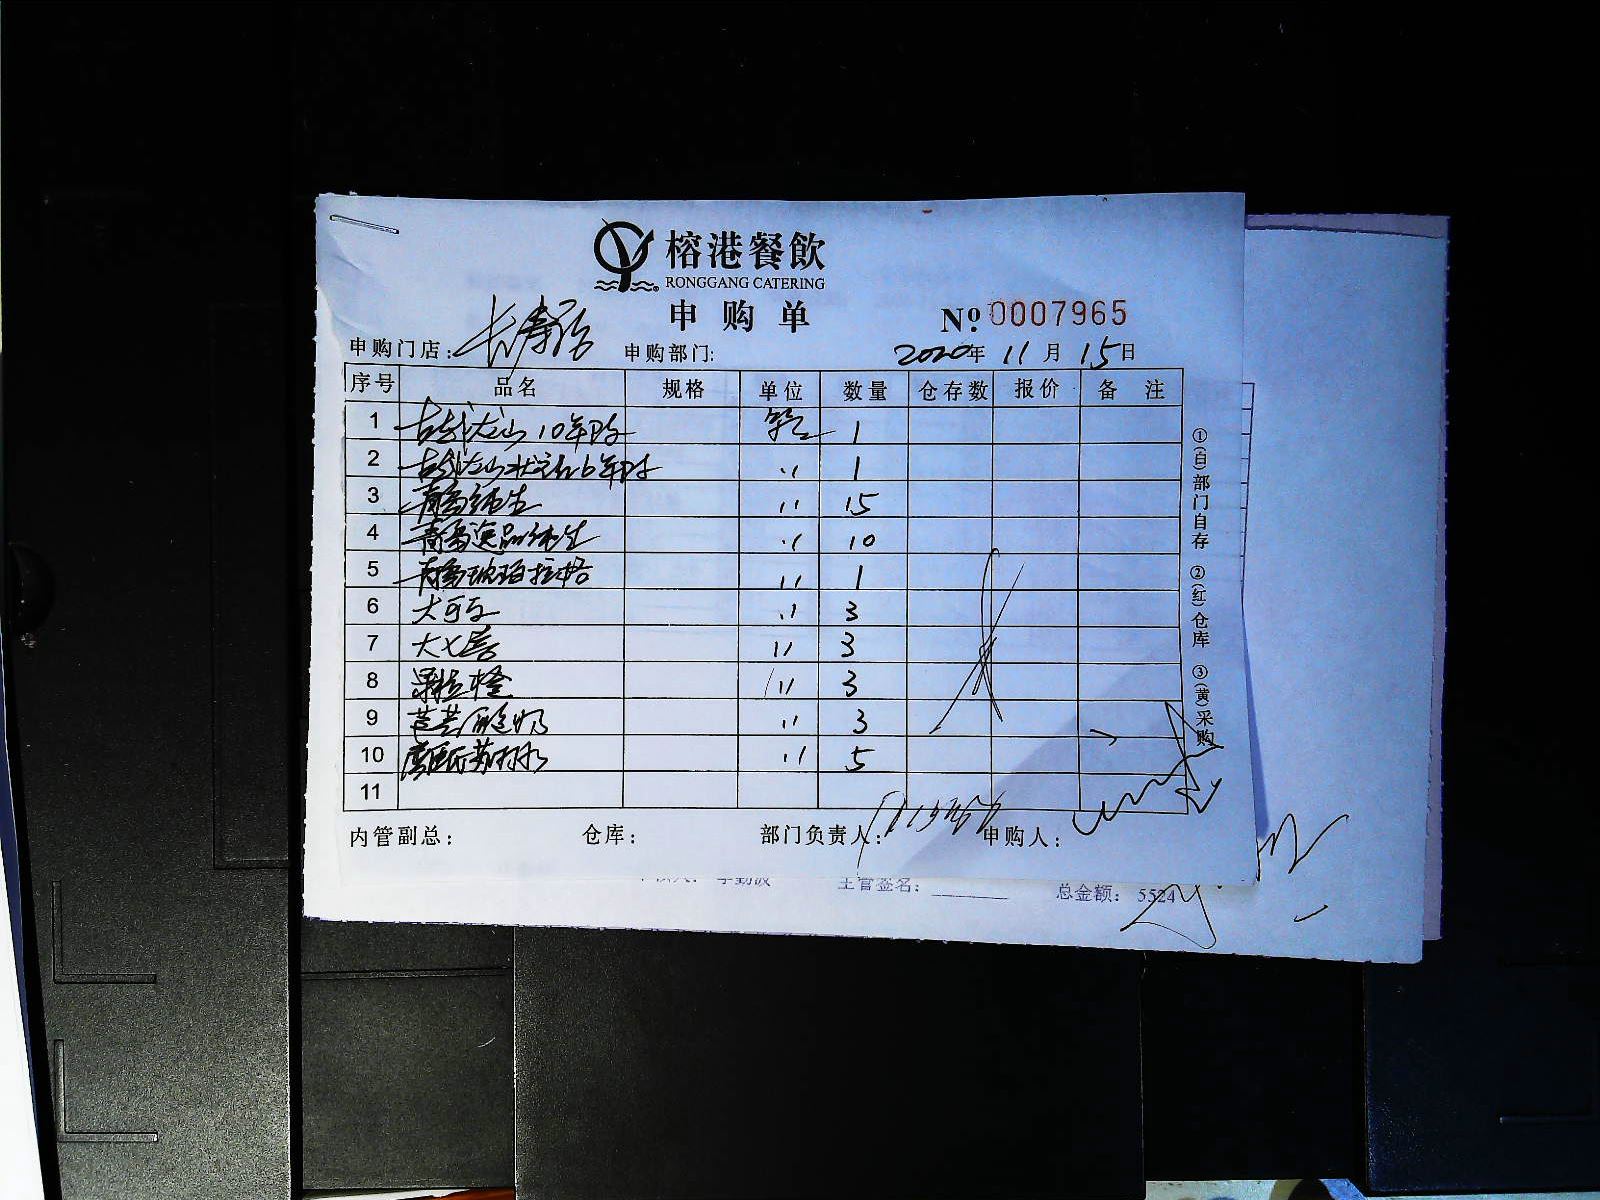 榕港餐飲
RONGGANG CATERING
申购单
№ 0007965
申购门店： 长寿路 申购部门： 2020年 11月 15日
序号 品名 规格 单位 数量 仓存数 报价 备注
1 古越龙山10年陈 箱 1
2 古越龙山状元红6年陈 〃 1
3 青岛纯生 〃 15
4 青岛逸品纯生 〃 10
5 青岛琥珀拉格 〃 1
6 大可乐 〃 3
7 大七喜 〃 3
8 果粒橙 〃 3
9 芦荟酸奶 〃 3
10 屈臣氏苏打水 〃 5
11
内管副总： 仓库： 部门负责人： 申购人：
①(白)部门自存 ②(红)仓库 ③(黄)采购
主管签名： 总金额： 5524